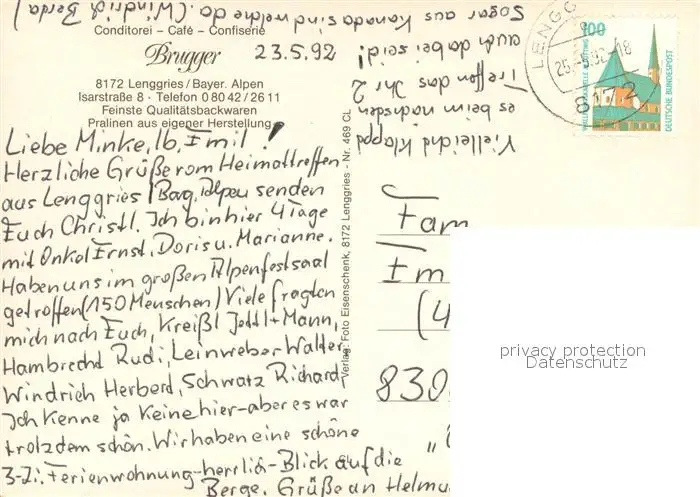 Conditorei – Café – Confiserie
Brugger
8172 Lenggries / Bayer. Alpen
Isarstraße 8 · Telefon 0 80 42 / 26 11
Feinste Qualitätsbackwaren
Pralinen aus eigener Herstellung
23.5.92
Liebe Minke, lb. Emil!
Herzliche Grüße vom Heimattreffen
aus Lenggries / Bay. Alpen senden
Euch Christl. Ich bin hier 4 Tage
mit Onkel Ernst, Doris u. Marianne.
Haben uns im großen Alpenfestsaal
getroffen (150 Menschen) Viele fragten
mich nach Euch, Kreißl Jettl + Mann,
Hambrecht Rudi, Leinweber Walter,
Windrich Herberd, Schwatz Richard,
Ich kenne ja keine hier - aber es war
trotzdem schön. Wir haben eine schöne
3-Zi. Ferienwohnung - herrlich - Blick auf die
Berge. Grüße an Helmu
Vielleicht klappd
es beim nächsden
Treffen das Ihr 2
auch dabei seid!
Sogar aus Kanada sind welche da. (Windrich Berda)
Verlag: Foto Eisenschenk, 8172 Lenggries - Nr. 469 CL
LENGG
8172
100
DEUTSCHE BUNDESPOST
Fam
Em
(4
830
privacy protection
Datenschutz